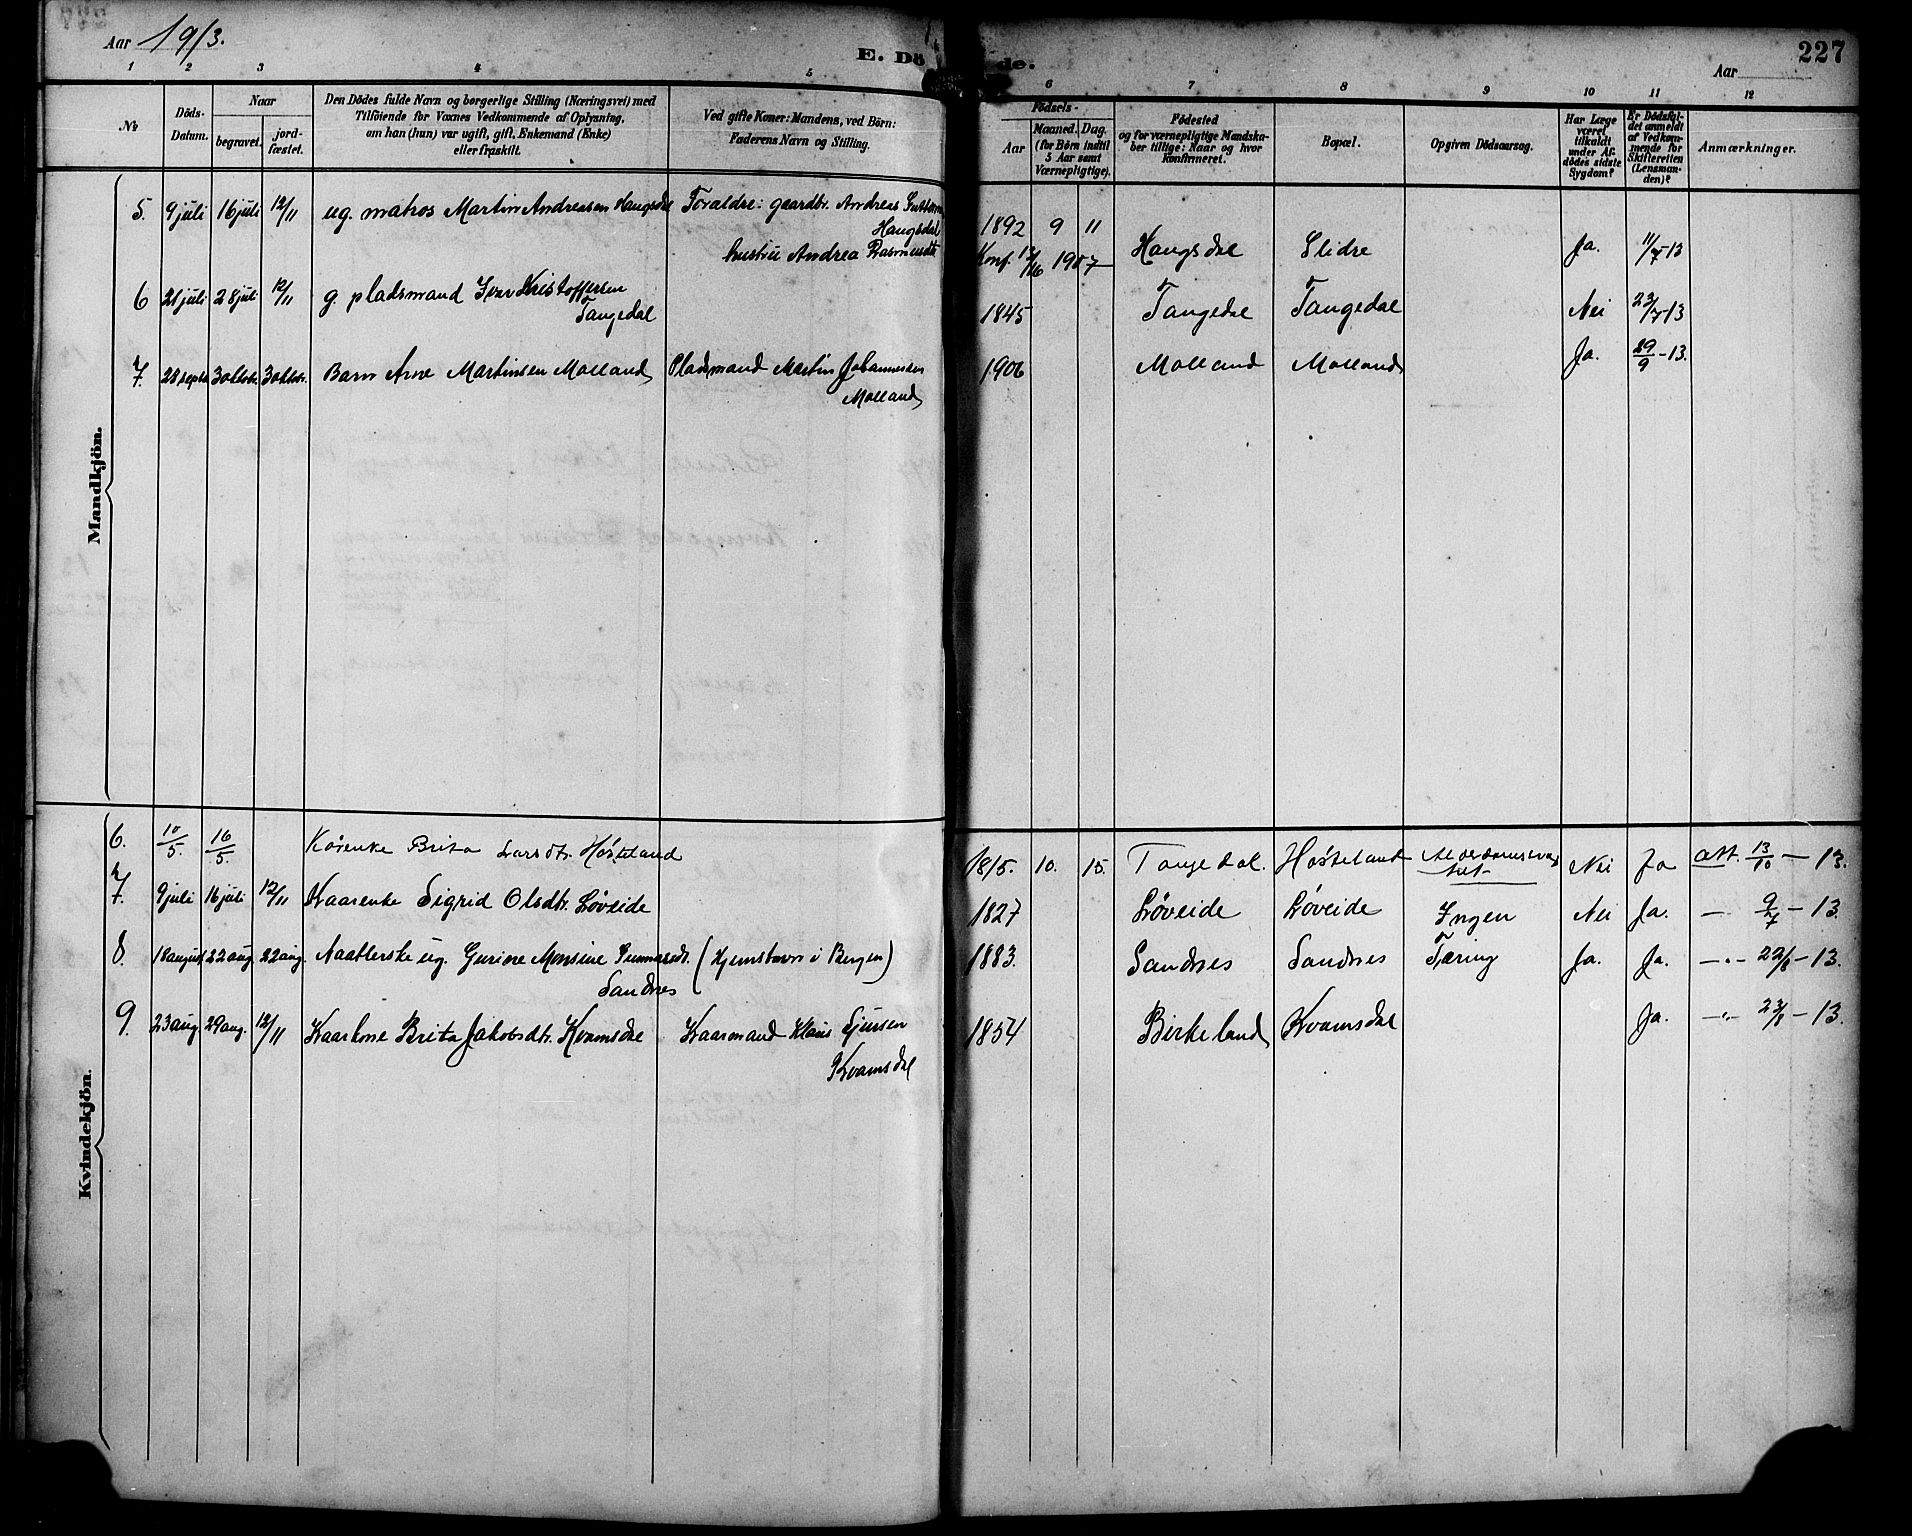 Aar 1913.
E. Dö
de.
Aar
227
1 2 3 4 5 6 7 8 9 10 11 12
No
Döds-
Datum.
Naar
begravet.
jord-
fæstet.
Den Dödes fulde Navn og borgerlige Stilling (Næringsvei) med
Tilföiende for Voxnes Vedkommende af Oplysning,
om han (hun) var ugift, gift, Enkemand (Enke)
eller fraskilt.
Ved gifte Koner: Mandens, ved Börn:
Faderens Navn og Stilling.
Födsels-
Aar
Maaned. Dag.
(for Börn indtil
5 Aar samt
Værnepligtige).
Födested
og for værnepligtige Mandska-
ber tillige: Naar og hvor
Konfirmeret.
Bopæl.
Opgiven Dödsaarsag.
Har Læge
været
tilkaldt
under Af-
dödes sidste
Sygdom?
Er Dödsfal-
det anmeldt
af Vedkom-
mende for
Skifteretten
(Lensman-
den)?
Anmærkninger.
Mandkjön.
5. 9 juli 16 juli 12/11 ug. matros Martin Andreasen Haugsdal Forældre: gaardbr. Andreas
Haugsdal
hustru Andrea Rasmusdtr
1892 9 11
Konf. 1907 Haugsdal Slidre Ja. 11/7-13
6 21 juli 28 juli 12/11 g. pladsmand Ivar Kristoffersen
Tangedal
1845 Tangedal Tangedal Nei 23/7-13
7. 28 septr 3 oktbr. 3 oktbr. Barn Arne Martinsen Molland Pladsmand Martin Johannesen
Molland
1906 Molland Molland Ja. 29/9-13.
Kvindekjön.
6. 10/5. 16/5. Kårenke Brita Larsdtr. Høsteland
1815. 10. 15. Tangedal. Høsteland Nei Ja att. 13/10 - 13.
7. 9 juli 16 juli 12/11 Kaarenke Sigrid Olsdtr. Løveide
1827 Løveide Løveide Ingen Nei Ja. -"- 9/7 - 13.
8. 18 august 22 aug. 22 aug. Naatlerske ug. Gurine Monsine Gunnarsdtr. (Hjemstavn i Bergen)
Sandnes
1883. Sandnes Sandnes Tæring Ja. Ja. -"- 22/8 - 13.
9. 23 aug. 29 aug. 12/11 Kaarkone Brita Jakobsdtr. Kvamsdal Kaarmand Klaus Sjursen
Kvamsdal
1854 Birkeland Kvamsdal Ja. -"- 23/8 - 13.